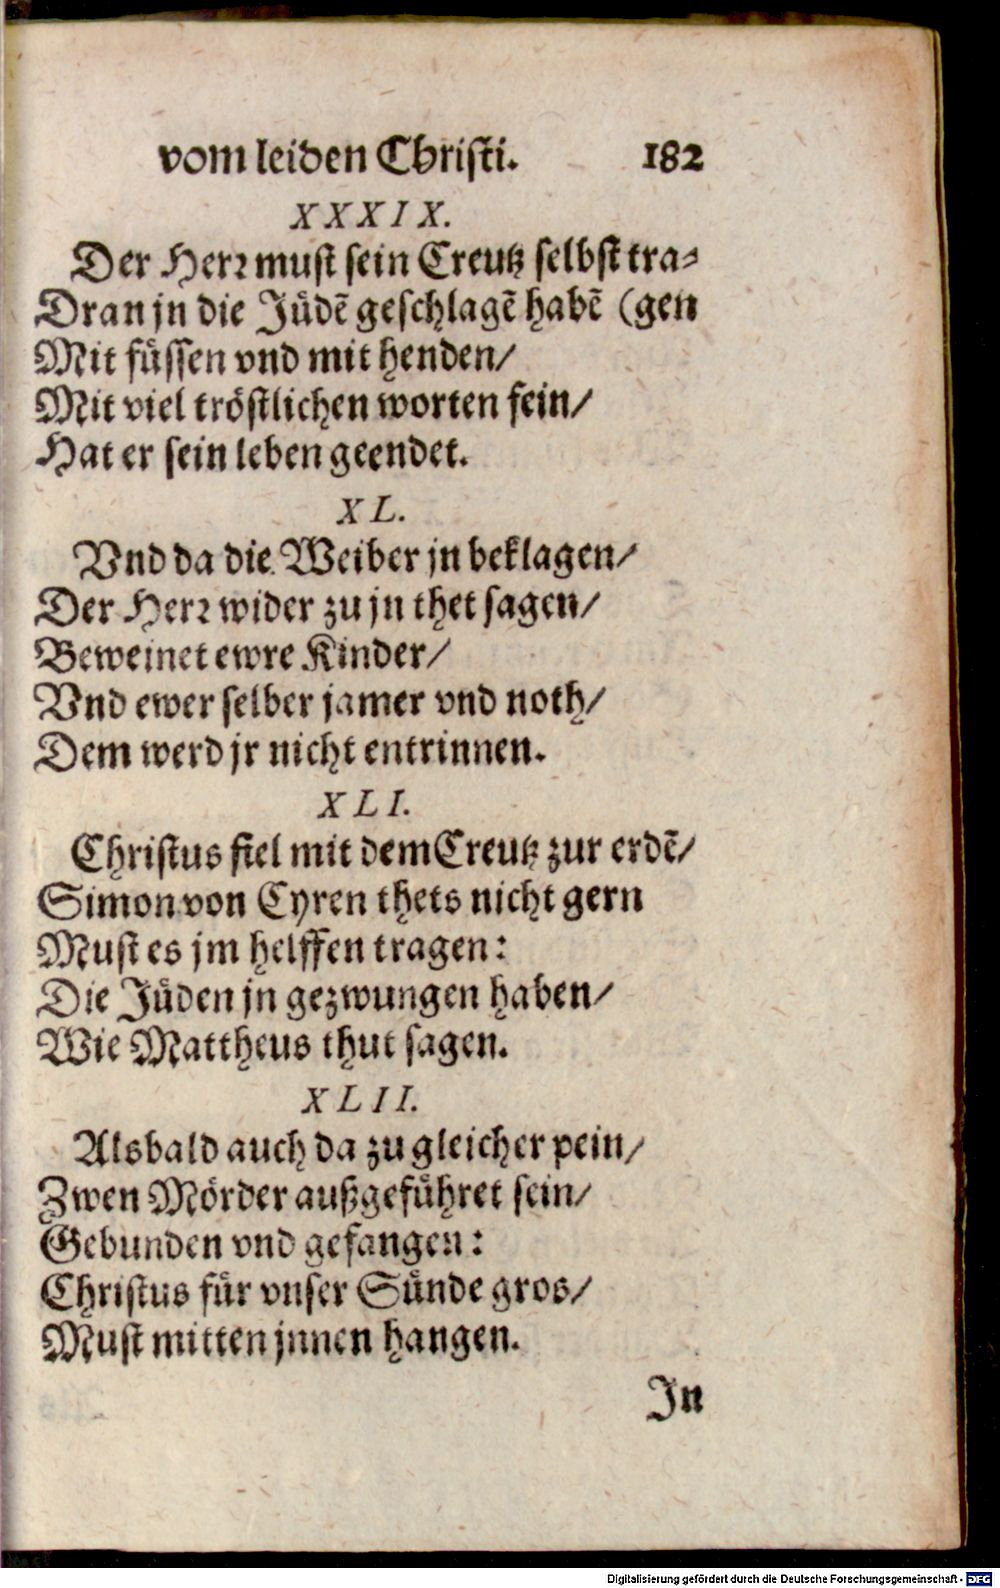 vom leiden Christi. 182
XXXIX.
Der Herꝛ must sein Creutz selbst tra⸗
Dran jn die Jüdẽ geschlagẽ habẽ (gen
Mit füssen vnd mit henden/
Mit viel tröstlichen worten fein/
Hat er sein leben geendet.
XL.
Vnd da die Weiber jn beklagen/
Der Herꝛ wider zu jn thet sagen/
Beweinet ewre Kinder/
Vnd ewer selber jamer vnd noth/
Dem werd jr nicht entrinnen.
XLI.
Christus fiel mit dem Creutz zur erdẽ/
Simon von Cyren thets nicht gern
Must es jm helffen tragen:
Die Jüden jn gezwungen haben/
Wie Mattheus thut sagen.
XLII.
Alsbald auch da zu gleicher pein/
Zwen Mörder außgeführet sein/
Gebunden vnd gefangen:
Christus für vnser Sünde gros/
Must mitten jnnen hangen.
In
Digitalisierung gefördert durch die Deutsche Forschungsgemeinschaft - DFG